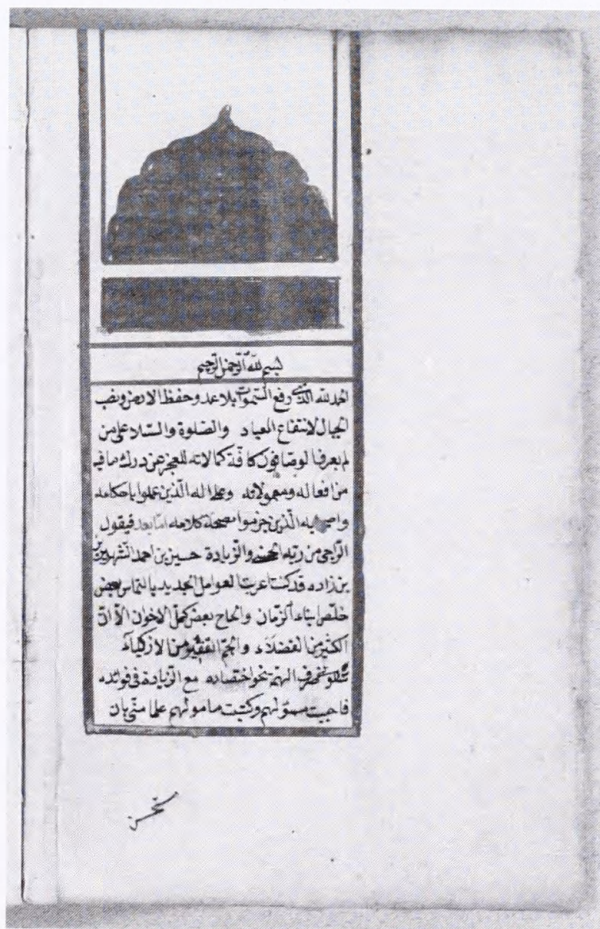 بسم الله الرحمن الرحيم
الحمد لله الذى رفع السموات بلا عمد وحفظ الارض ونصب
الجبال لانتفاع العباد والصلوة والسلا على من
لم يعرف الوصافون كافة كمالاته للعجز عن درك ما فيه
من افعاله ومعمولاته وعلى اله الذين عملوا باحكامه
واصحابه الذين جزموا بصحة كلامه اما بعد فيقول
الراجى من ربه الحسنى والزيادة حسين بن احمد الشهير بز
ينى زاده قد كنت اعربت العوامل الجديد بالتماس بعض
خلص ابناء الزمان والحاح بعض كمل الاخوان الا ان
الكثير من الفضلاء والجم الفقير من الازكياء
صرف الهمة نحو اختصاره مع الزيادة فى فوائده
فاجبت مسؤلهم وكتبت مامولهم علما منى بان